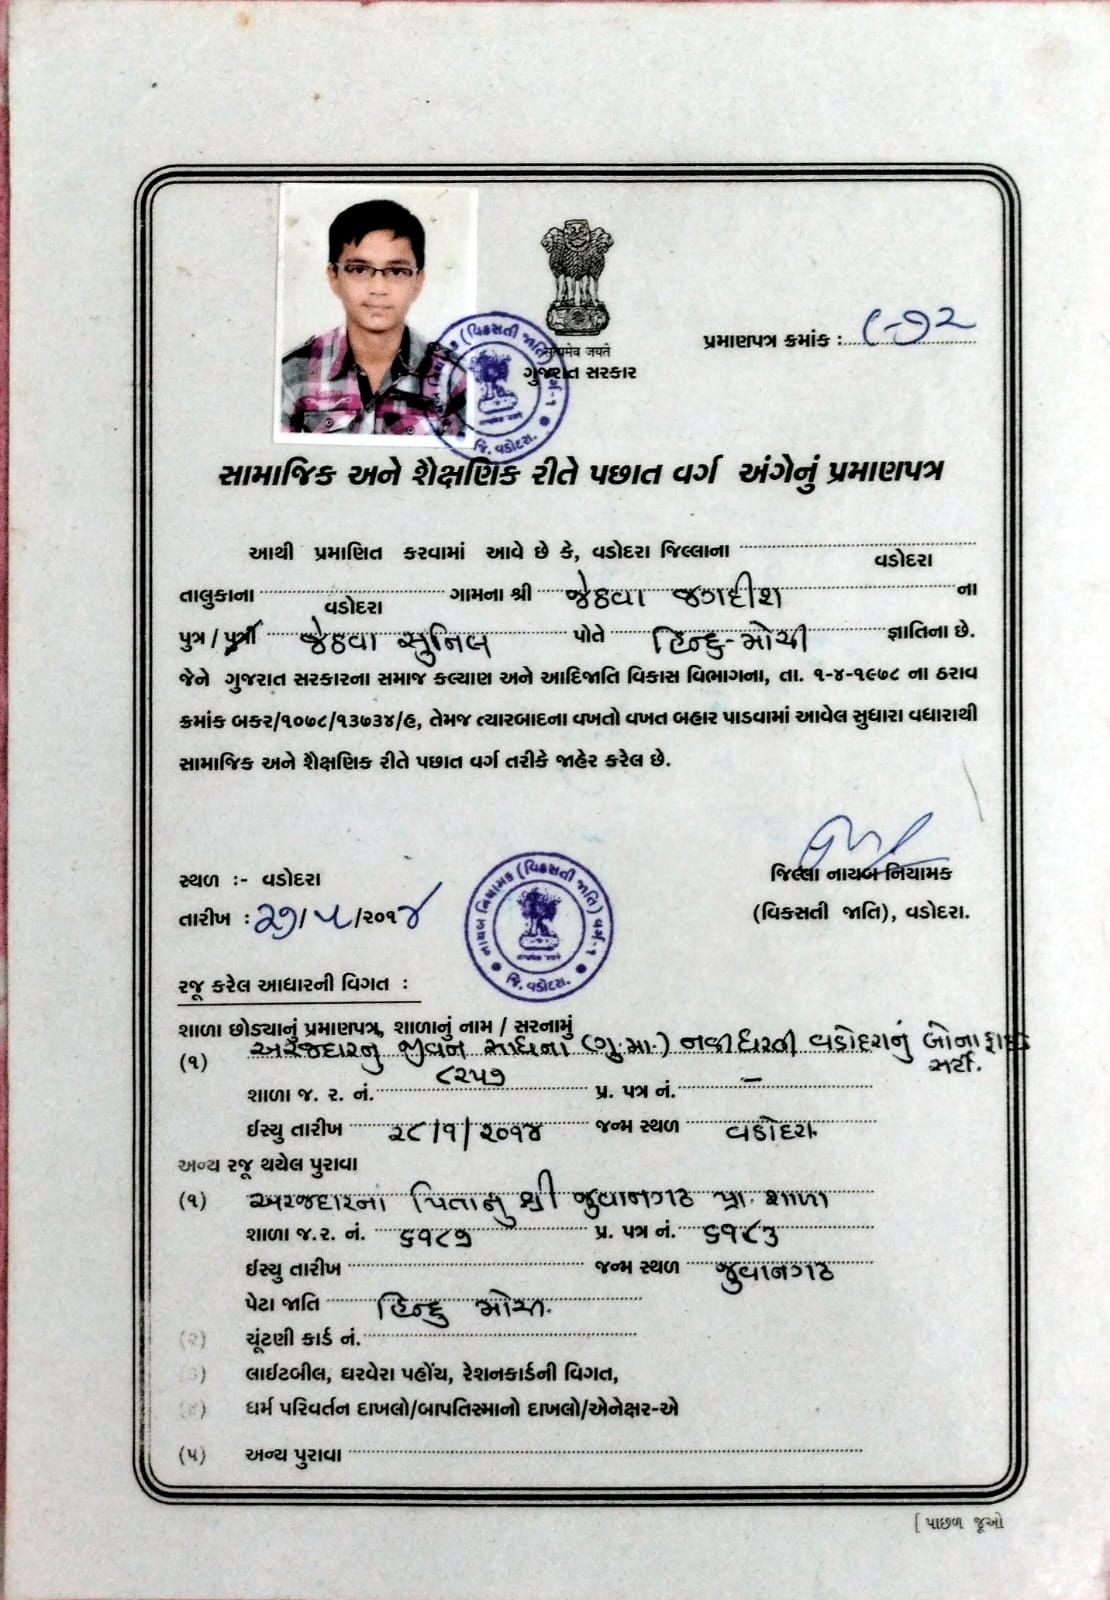 સત્યમેવ જયતે
ગુજરાત સરકાર
પ્રમાણપત્ર ક્રમાંક :
નાયબ નિયામક (વિકસતી જાતિ) વર્ગ-૧
જિ. વડોદરા.
સામાજિક અને શૈક્ષણિક રીતે પછાત વર્ગ અંગેનું પ્રમાણપત્ર
આથી પ્રમાણિત કરવામાં આવે છે કે, વડોદરા જિલ્લાના વડોદરા
તાલુકાના વડોદરા ગામના શ્રી જેઠવા જગદીશ ના
પુત્ર / પુત્રી જેઠવા સુનિલ પોતે હિન્દુ-મોચી જ્ઞાતિના છે.
જેને ગુજરાત સરકારના સમાજ કલ્યાણ અને આદિજાતિ વિકાસ વિભાગના, તા. ૧-૪-૧૯૭૮ ના ઠરાવ
ક્રમાંક બકર/૧૦૭૮/૧૩૭૩૪/હ, તેમજ ત્યારબાદના વખતો વખત બહાર પાડવામાં આવેલ સુધારા વધારાથી
સામાજિક અને શૈક્ષણિક રીતે પછાત વર્ગ તરીકે જાહેર કરેલ છે.
સ્થળ :- વડોદરા
તારીખ : ૨૭/૫/૨૦૧૪
નાયબ નિયામક (વિકસતી જાતિ) વર્ગ-૧
જિ. વડોદરા.
જિલ્લા નાયબ નિયામક
(વિકસતી જાતિ), વડોદરા.
રજૂ કરેલ આધારની વિગત :
શાળા છોડ્યાનું પ્રમાણપત્ર, શાળાનું નામ / સરનામું
(૧) અરજદારનુ જીવન સાધના (ગુ.મા.) નવીધરતી વડોદરાનું બોનાફાઈડ સર્ટી.
શાળા જ. ર. નં. ૮૨૫૭ પ્ર. પત્ર નં. –
ઈસ્યુ તારીખ ૨૮/૧/૨૦૧૪ જન્મ સ્થળ વડોદરા.
અન્ય રજૂ થયેલ પુરાવા
(૧) અરજદારના પિતાનુ શ્રી જુવાનગઢ પ્રા. શાળા
શાળા જ.ર. નં. ૬૧૮૭ પ્ર. પત્ર નં. ૬૧૮૩
ઈસ્યુ તારીખ જન્મ સ્થળ જુવાનગઢ
પેટા જાતિ હિન્દુ મોચી.
(૨) ચૂંટણી કાર્ડ નં.
(૩) લાઈટબીલ, ઘરવેરા પહોંચ, રેશનકાર્ડની વિગત,
(૪) ધર્મ પરિવર્તન દાખલો/બાપતિસ્માનો દાખલો/એનેક્ષર-એ
(૫) અન્ય પુરાવા
[ પાછળ જૂઓ